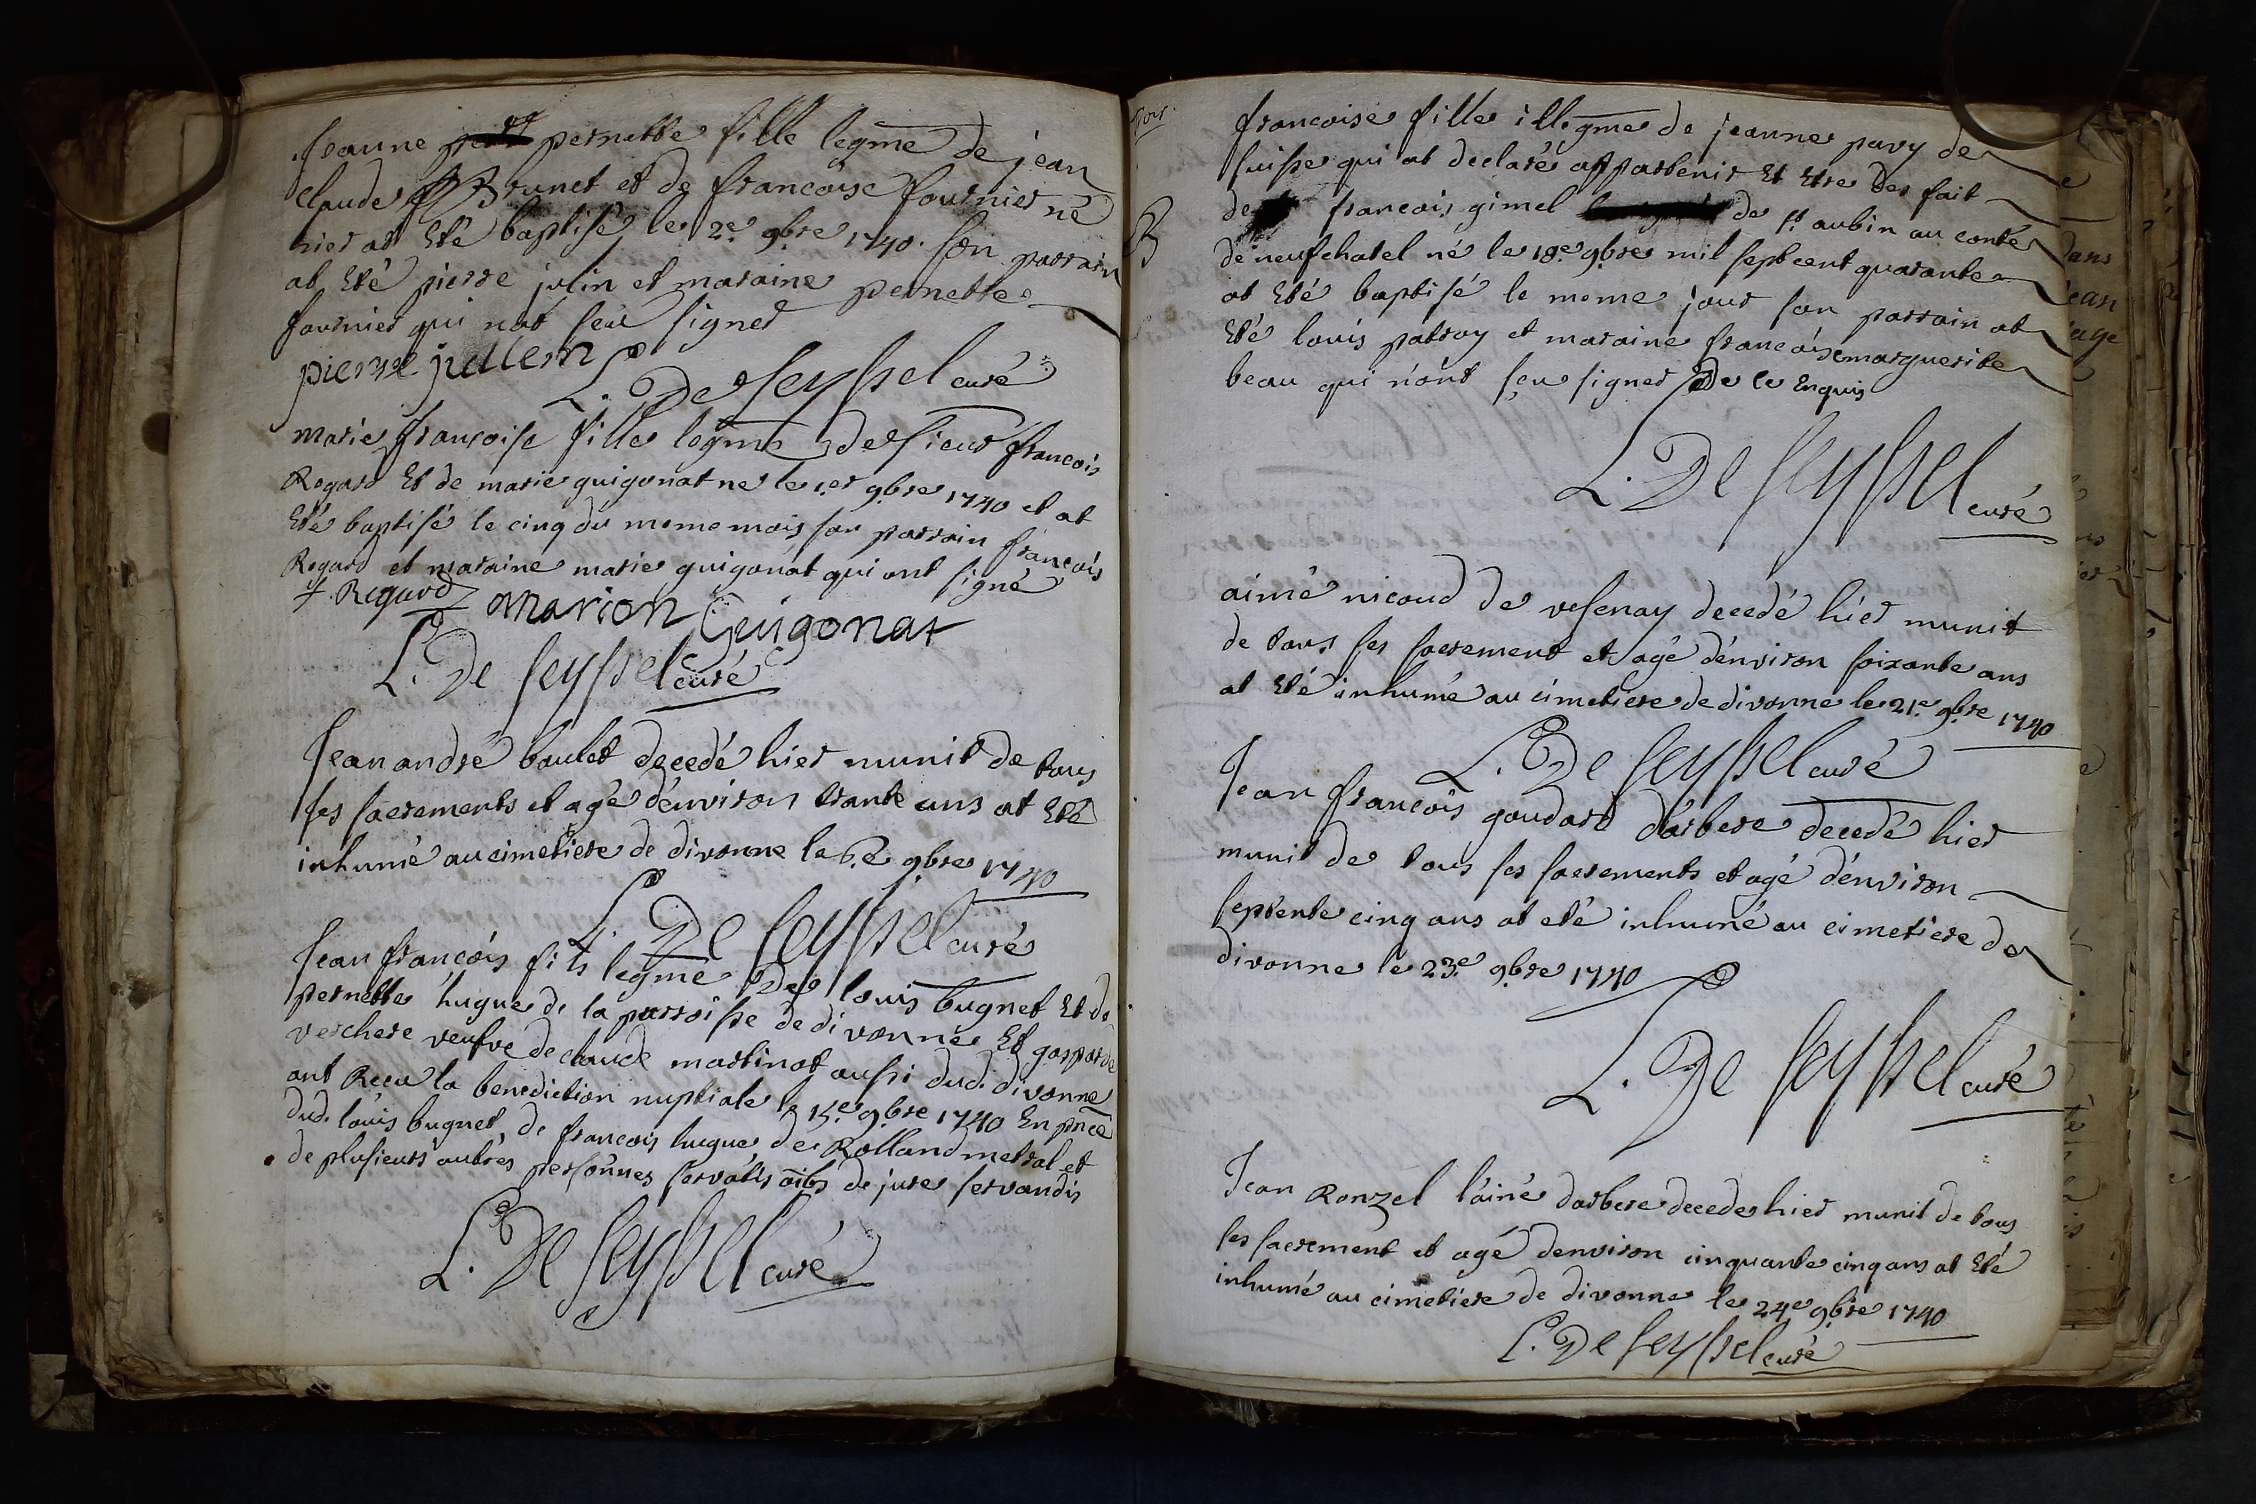 Jeanne pernette fille legme de jean
claude Brunet et de francoise fournier né
hier at Eté baptisé le 2e 9bre 1740. son parrain
at Eté pierre julin et maraine pernette
fournier qui nat seu signer
pierre jullein
L. De Seyssel curé
marie françoise fille legme de sieur francois
Regard Et de marie guigonat ne le 1er 9bre 1740 et at
Eté baptisé le cinq du meme mois son parrain francois
Regard et maraine marie guigonat qui ont signé
f. Regard marion Guigonat
L. De Seyssel curé
Jean andré boulet decedé hier munit de tous
ses sacrements et agé d'environ trante ans at Eté
inhumé au cimetiere de divonne le 6e 9bre 1740
L. De Seyssel curé
Jean francois fils legme De louis bugnet Et de
pernette hugue de la parroisse de divonne Et gasparde
verchere veufve de claude martinat aussi dud. divonne
ont Receu la benediction nuptiale le 15e 9bre 1740 En pnce
dud. louis bugnet, de francois hugue de Rolland metral et
de plusieurs autres personnes servatis oibs de jure servandis
L. De Seyssel curé
francoise fille illegme de jeanne pavy de
suisse qui at declaré appartenir Et Etre des fait
de francois gimel de st aubin au conté
de neufchatel né le 18e 9bre mil sept cent quarante
at Eté baptisé le meme jour son parrain at
Eté louis patroy et maraine francoise marguerite
beau qui n'ont sçeu signer De ce Enquis
B
L. De Seyssel curé
aimé nicoud de vesenay decedé hier munit
de tous ses sacrement et agé d'environ soixante ans
at Eté inhumé au cimetiere de divonne le 21e 9bre 1740
L. De Seyssel curé
Jean francois goudard d'arbere decedé hier
munit de tous ses sacrements et agé d'environ
septente cinq ans at eté inhumé au cimetiere de
divonne le 23e 9bre 1740
L. De Seyssel curé
Jean Ronzel l'ainé darbere decede hier munit de tous
ses sacrement et agé denviron cinquante cinq ans at Eté
inhumé au cimetiere de divonne le 24e 9bre 1740
L. De Seyssel curé